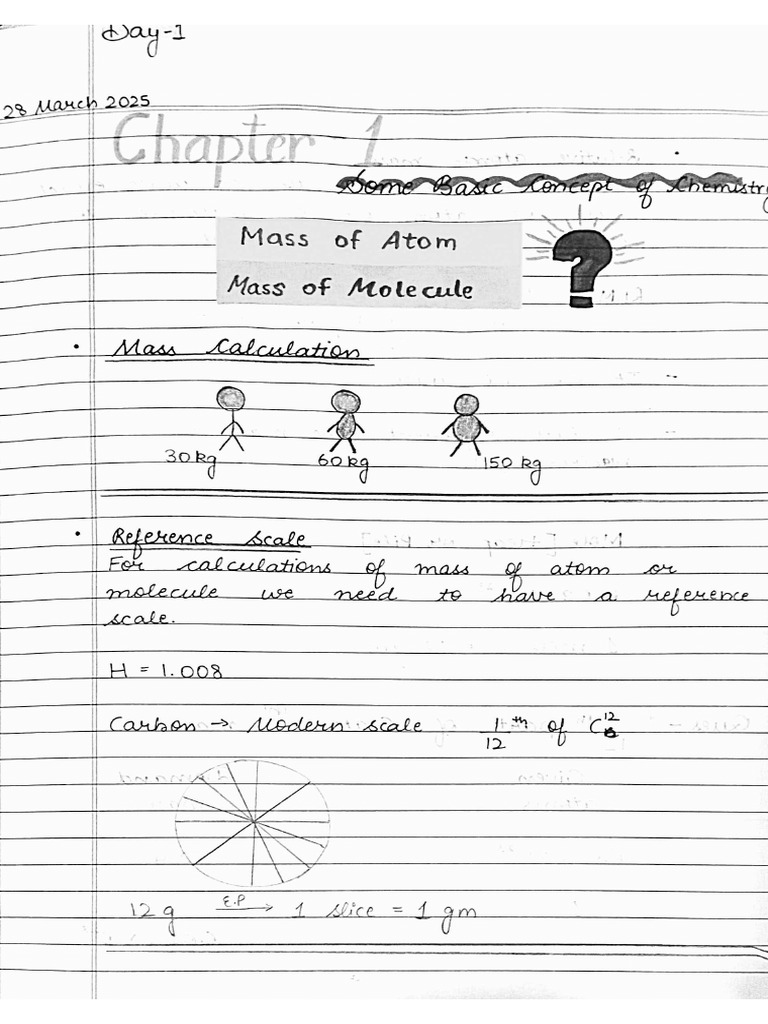 Day-1
28 March 2025
Chapter 1
Some Basic Concept of Chemistry
Mass of Atom
Mass of Molecule
?
• Mass Calculation
30 kg 60 kg 150 kg
• Reference scale
For calculations of mass of atom or
molecule we need to have a reference
scale.
H = 1.008
Carbon → Modern scale 1/12 th of C 12 6
12 g E.P → 1 slice = 1 gm